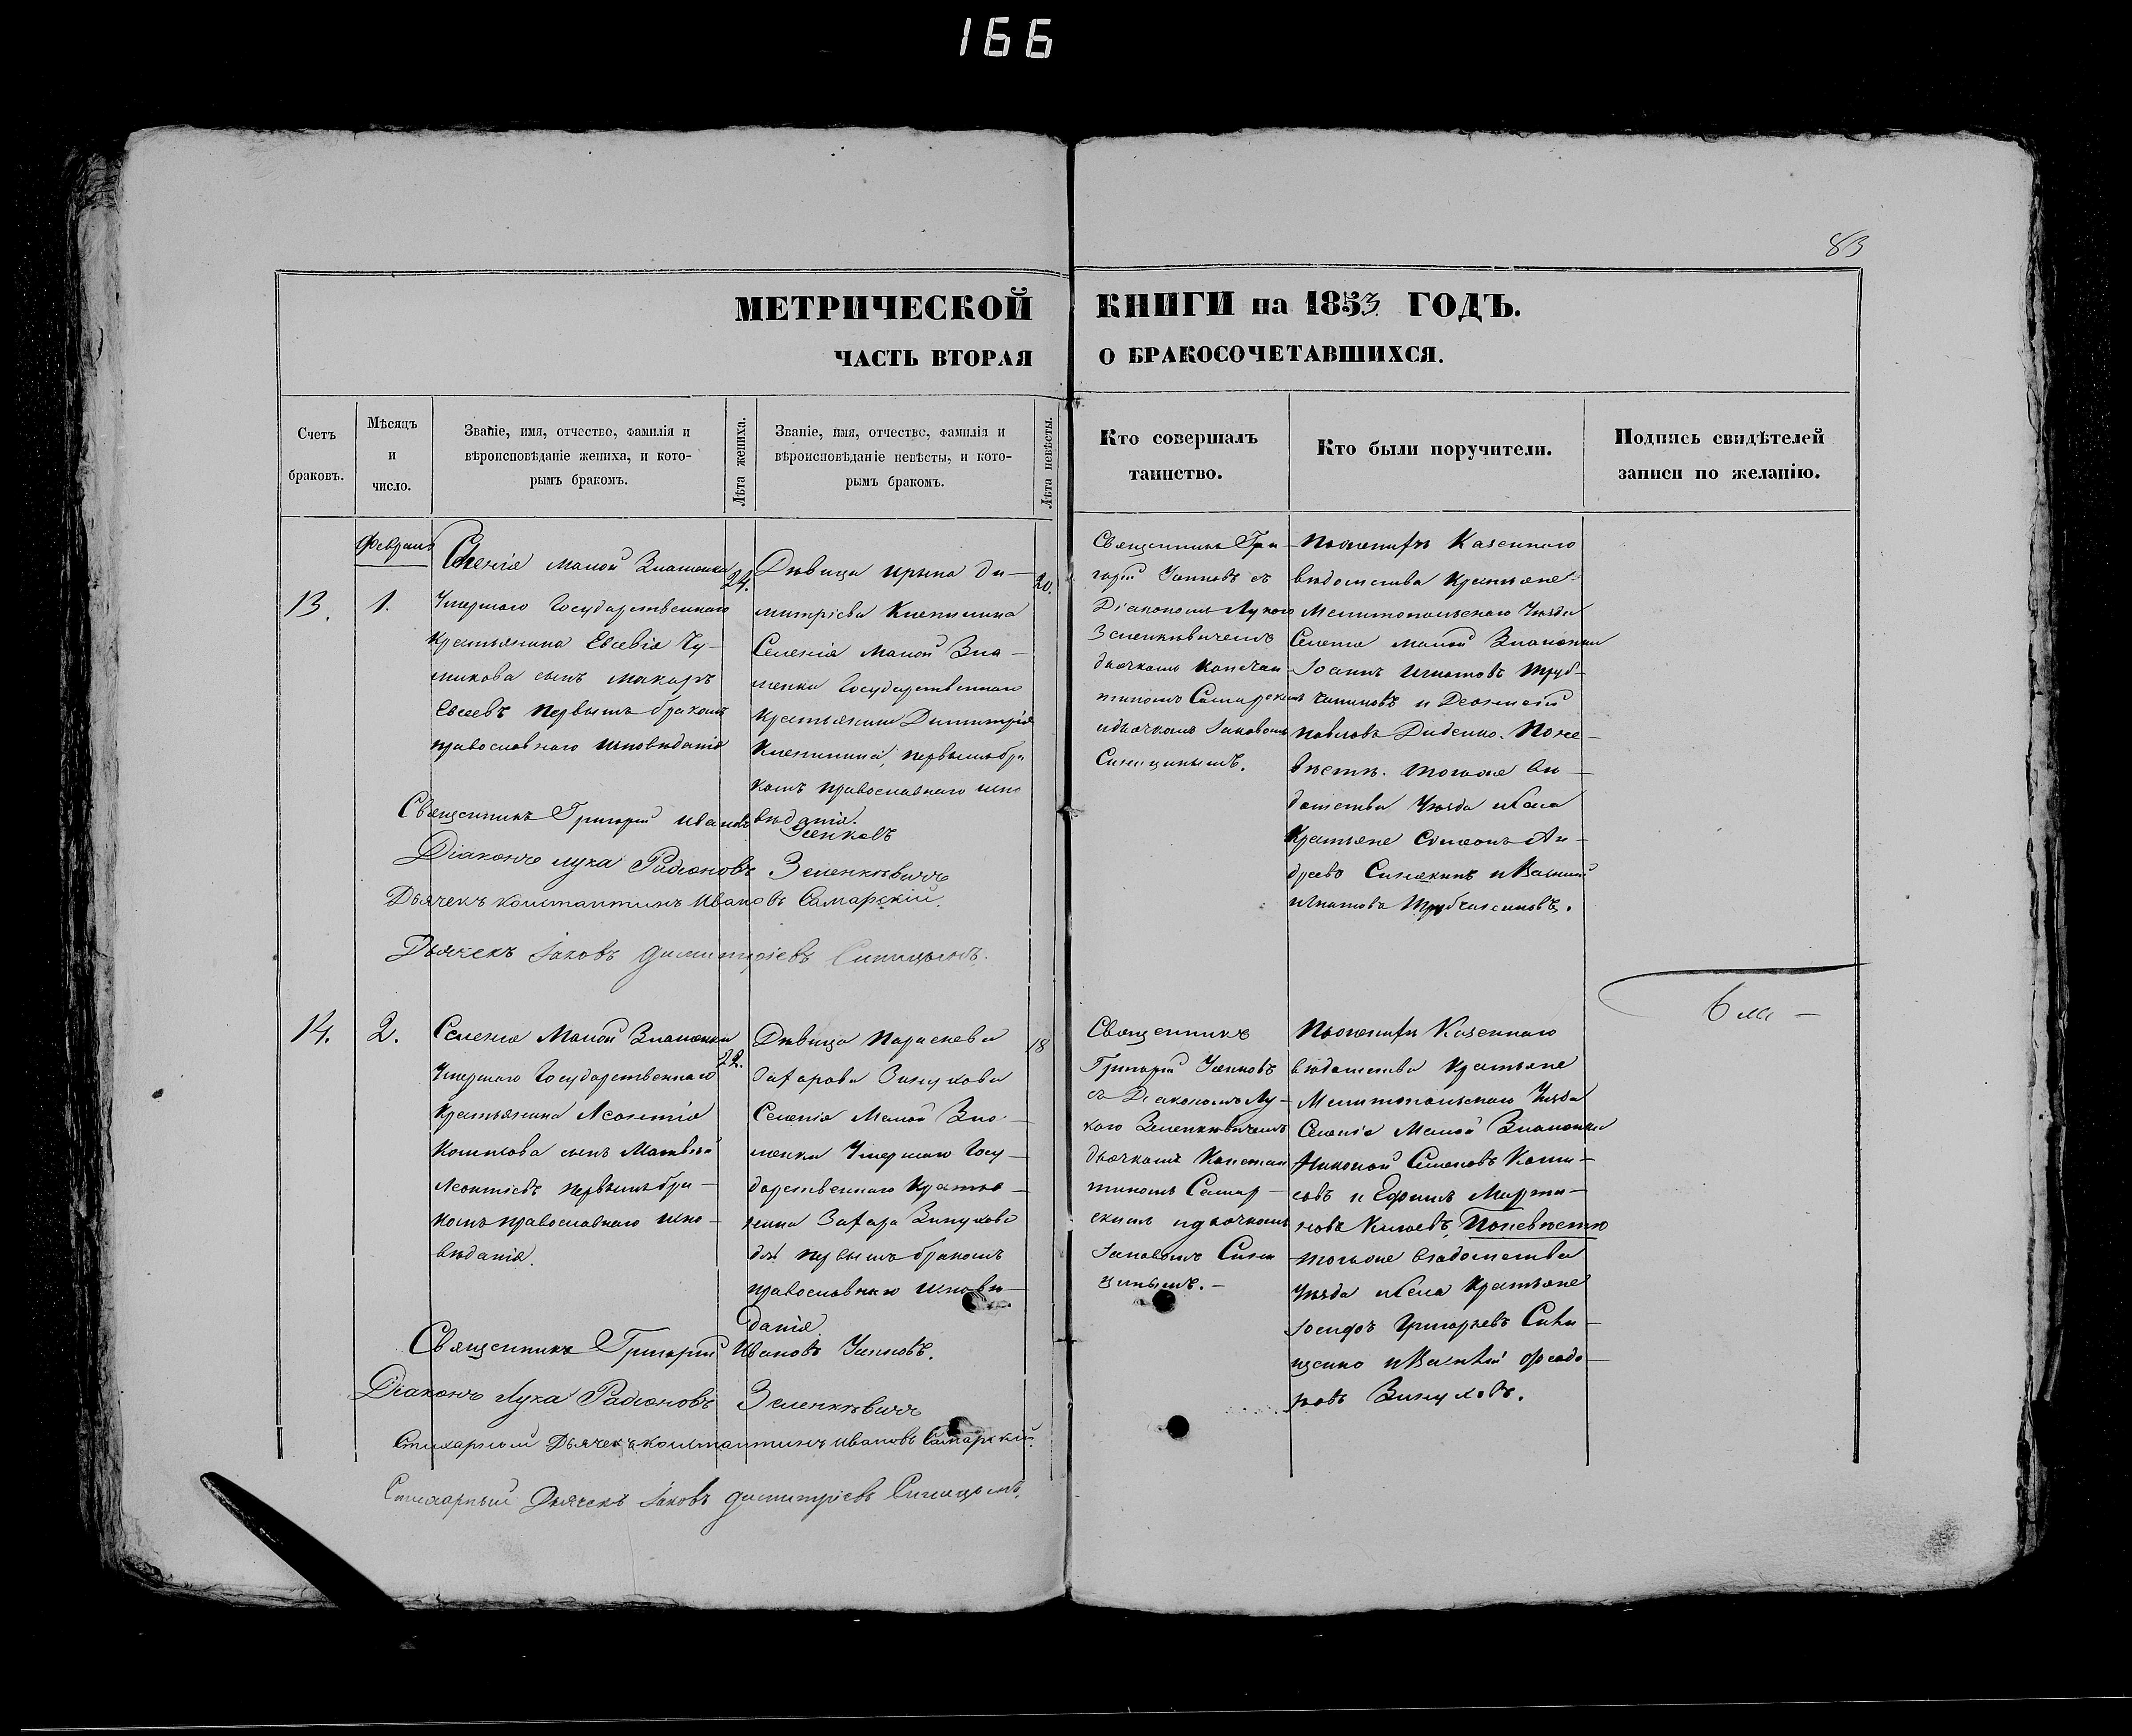 166
83
МЕТРИЧЕСКОЙ КНИГИ на 1853 ГОДЪ.
ЧАСТЬ ВТОРАЯ О БРАКОСОЧЕТАВШИХСЯ.
Счетъ браковъ.
Мѣсяцъ и число.
Званіе, имя, отчество, фамилія и
вѣроисповѣданіе жениха, и кото-
рымъ бракомъ.
Лѣта жениха.
Званіе, имя, отчество, фамилія и
вѣроисповѣданіе невѣсты, и кото-
рымъ бракомъ.
Лѣта невѣсты.
Кто совершалъ
таинство.
Кто были поручители.
Подпись свидѣтелей
записи по желанію.
Февраль
13.
1.
Селенія Малой Знаменки
Умершаго Государственнаго
Крестьянина Евсевія
сынъ Макаръ
Евсеевъ первымъ бракомъ
православнаго исповѣданія
24.
Дѣвица Ирина Ди-
митріева
Селенія Малой Зна-
менки Государственнаго
Крестьянина Димитрія
первымъ бра
комъ православнаго испо
вѣданія.
20.
Священникъ Гри-
горій съ
Діакономъ Лукою
Зеленкѣвичемъ
дьячкомъ Констан-
тиномъ Самарскимъ
и дьячкомъ Іаковомъ
Синицынымъ.
По женихѣ Казеннаго
вѣдомства крестьяне
Мелитопольскаго Уѣзда
Селенія Малой Знаменки
Іоаннъ Игнатовъ
и Леонтій
Павловъ Диденко. По не-
вѣстѣ. тогоже вѣ-
домства Уѣзда и села
Крестьяне Симеонъ Ан-
дреевъ и Василій
Игнатовъ
Священникъ Григорій Ивановъ
Діаконъ Лука Радіоновъ Зеленкѣвичъ
Дьячекъ Константинъ Ивановъ Самарскій.
Дьячекъ Іаковъ Димитріевъ Синицынъ.
14.
2.
Селенія Малой Знаменки
Умершаго Государственнаго
Крестьянина Леонтія
сынъ Матвѣй
Леонтіевъ первымъ бра-
комъ православнаго испо-
вѣданія.
22.
Дѣвица Параскева
Захарова
Селенія Малой Зна-
менки Умершаго Госу-
дарственнаго Крестья-
нина Захара
первымъ бракомъ
православнаго исповѣ-
данія
18
Священникъ
Григорій
съ Діакономъ Лу-
кою Зеленкѣвичемъ
дьячкомъ Констан
тиномъ Самар-
скимъ и дьячкомъ
Іаковомъ Сини
цынымъ.-
По женихѣ Казеннаго
вѣдомства крестьяне
Мелитопольскаго Уѣзда
Селенія Малой Знаменки
Николай Семеновъ
и Ефимъ Марти-
новъ По невѣстѣ
тогоже вѣдомства
Уѣзда и села Крестьяне
Іосифъ Григорьевъ
и Василій Феодо-
ровъ
Священникъ Григорій Ивановъ
Діаконъ Лука Радіоновъ Зеленкѣвичъ
Стихарный Дьячекъ Константинъ Ивановъ Самарскій.
Стихарный Дьячекъ Іаковъ Димитріевъ Синицынъ.